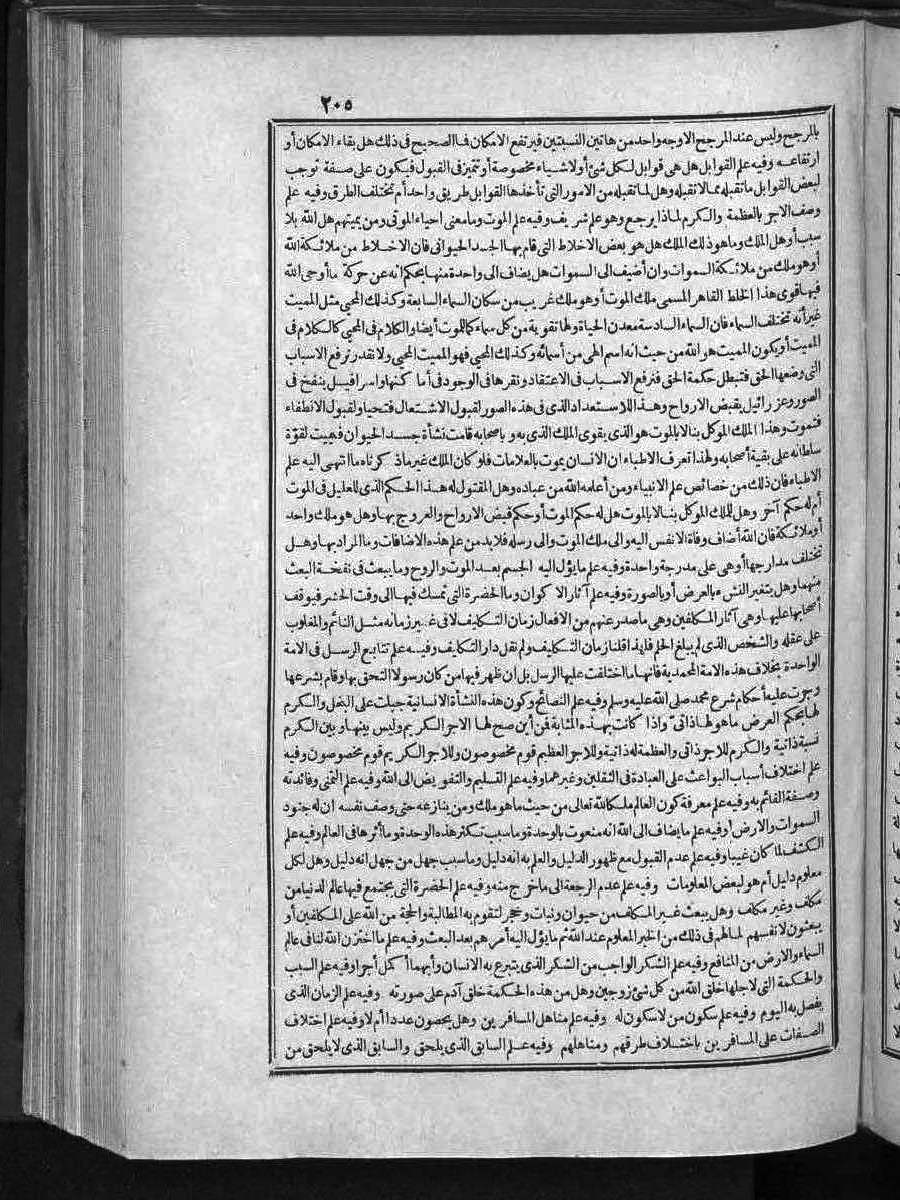 ٢٠٥
بالمرجح وليس عند المرجح الاوجه واحد من هاتين النسبتين فيرتفع الامكان فما الصحيح فى ذلك هل بقاء الامكان أو
ارتفاعه وفيه علم القوابل هل هى قوابل لكل شئ أولا شياء مخصوصة أو تتميز فى القبول فيكون على صفة توجب
لبعض القوابل ما تقبله مما لا تقبله وهل لما تقبله من الامور التى تأخذها القوابل طريق واحد أم تختلف الطرق وفيه علم
وصف الاجر بالعظمة والكرم لماذا يرجع وهو علم شريف وفيه علم الموت وما معنى احياء الموتى ومن يميتهم هل الله بلا
سبب أو هل الملك وما هو ذلك الملك هل هو بعض الاخلاط التى قام بها الجسد الحيوانى فان الاخلاط من ملائكة الله
أو هو ملك من ملائكة السموات وان أضيف الى السموات هل يضاف الى واحدة منها بحكم انه عن حركة ما أوحى الله
فيها قوى هذا الخلط القاهر المسمى ملك الموت أو هو ملك غريب من سكان السماء السابعة وكذلك المحيى مثل المميت
غير أنه تختلف السماء فان السماء السادسة معدن الحياة ولها تقوية من كل سماء كما للموت أيضا والكلام فى المحيى كالكلام فى
المميت أو يكون المميت هو الله من حيث انه اسم الهى من أسمائه وكذلك المحيى فهو المميت المحيى ولا نقدر نرفع الاسباب
التى وضعها الحق فتبطل حكمة الحق فنرفع الاسباب فى الاعتقاد ونقرها فى الوجود فى أما كنها واسرافيل ينفخ فى
الصور وعزرائيل يقبض الارواح وهذا للاستعداد الذى فى هذه الصور لقبول الاشتعال فتحيا ولقبول الانطفاء
فتموت وهذا الملك الموكل بنا لا بالموت هو الذى يقوى الملك الذى به و باصحابه قامت نشأة جسد الحيوان فيميت لقوّة
سلطانه على بقية أصحابه ولهذا تعرف الاطباء ان الانسان يموت بالعلامات فلو كان الملك غير ماذ كرناه ما انتهى اليه علم
الاطباء فان ذلك من خصائص علم الانبياء ومن أعلمه الله من عباده وهل المقتول له هذا الحكم الذى للعليل فى الموت
أم له حكم آخر وهل للملك الموكل بنا لا بالموت هل له حكم الموت أو حكم قبض الارواح والعروج بها وهل هو ملك واحد
أو ملائكة فان الله أضاف وفاة الانفس اليه والى ملك الموت والى رسله فلابد من علم هذه الاضافات وما المراد بها وهل
تختلف مدارجها أو هى على مدرجة واحدة وفيه علم ما يؤل اليه الجسم بعد الموت والروح وما يبعث فى نفخة البعث
منهما وهل يتغير النشء بالعرض أو بالصورة وفيه علم آثار الاكوان وما الحضرة التى تمسك فيها الى وقت الحشر فيوقف
أصحابها عليها وهى آثار المكلفين وهى ما صدر عنهم من الافعال زمان التكليف لا فى غير زمانه مثل النائم والمغلوب
على عقله والشخص الذى لم يبلغ الحلم فلهذا قلنا زمان التكليف ولم نقل دار التكليف وفيه علم تتابع الرسل فى الامة
الواحدة بخلاف هذه الامة المحمدية فانها ما اختلفت عليها الرسل بل ان ظهر فيها من كان رسولا التحق بها وقام بشرعها
وجرت عليه أحكام شرع محمد صلى الله عليه وسلم وفيه علم النصائح وكون هذه النشأة الانسانية جبلت على البخل والكرم
لها بحكم العرض ما هو لها ذاتىّ واذا كانت بهذه المثابة فمن أين صح لها الاجر الكريم وليس بينها وبين الكرم
نسبة ذاتية والكرم للاجر ذاتى والعظمة له ذاتية وللاجر العظيم قوم مخصوصون وللاجر الكريم قوم مخصوصون وفيه
علم اختلاف أسباب البواعث على العبادة فى الثقلين وغيرهما وفيه علم التسليم والتفويض الى الله وفيه علم التمنى وفائدته
وصفة القائم به وفيه علم معرفة كون العالم ملكا لله تعالى من حيث ما هو ملك ومن ينازعه حتى وصف نفسه ان له جنود
السموات والارض أو فيه علم ما يضاف الى الله انه منعوت بالوحدة وما سبب تكثر هذه الوحدة وما أثرها فى العالم وفيه علم
الكشف لما كان غيبا وفيه علم عدم القبول مع ظهور الدليل والعلم به انه دليل وما سبب جهل من جهل انه دليل وهل لكل
معلوم دليل أم هو لبعض المعلومات وفيه علم عدم الرجعة الى ما خرج منه وفيه علم الحضرة التى يجتمع فيها عالم الدنيا من
مكلف وغير مكلف وهل يبعث غير المكلف من حيوان ونبات وحجر لتقوم به المطالبة والحجة من الله على المكلفين أو
يبعثون لا نفسهم لما لهم فى ذلك من الخير المعلوم عند الله ثم ما يؤل اليه أمرهم بعد البعث وفيه علم ما اختزن الله لنا فى عالم
السماء والارض من المنافع وفيه علم الشكر الواجب من الشكر الذى يتبرع به الانسان وأيهما أكمل أجرا وفيه علم السبب
والحكمة التى لاجلها خلق الله من كل شئ زوجين وهل من هذه الحكمة خلق آدم على صورته وفيه علم الزمان الذى
يفصل به اليوم وفيه علم سكون من لا سكون له وفيه علم مناهل المسافرين وهل يحصون عددا أم لا وفيه علم اختلاف
الصفات على المسافرين باختلاف طرقهم ومناهلهم وفيه علم السابق الذى يلحق والسابق الذى لا يلحق من